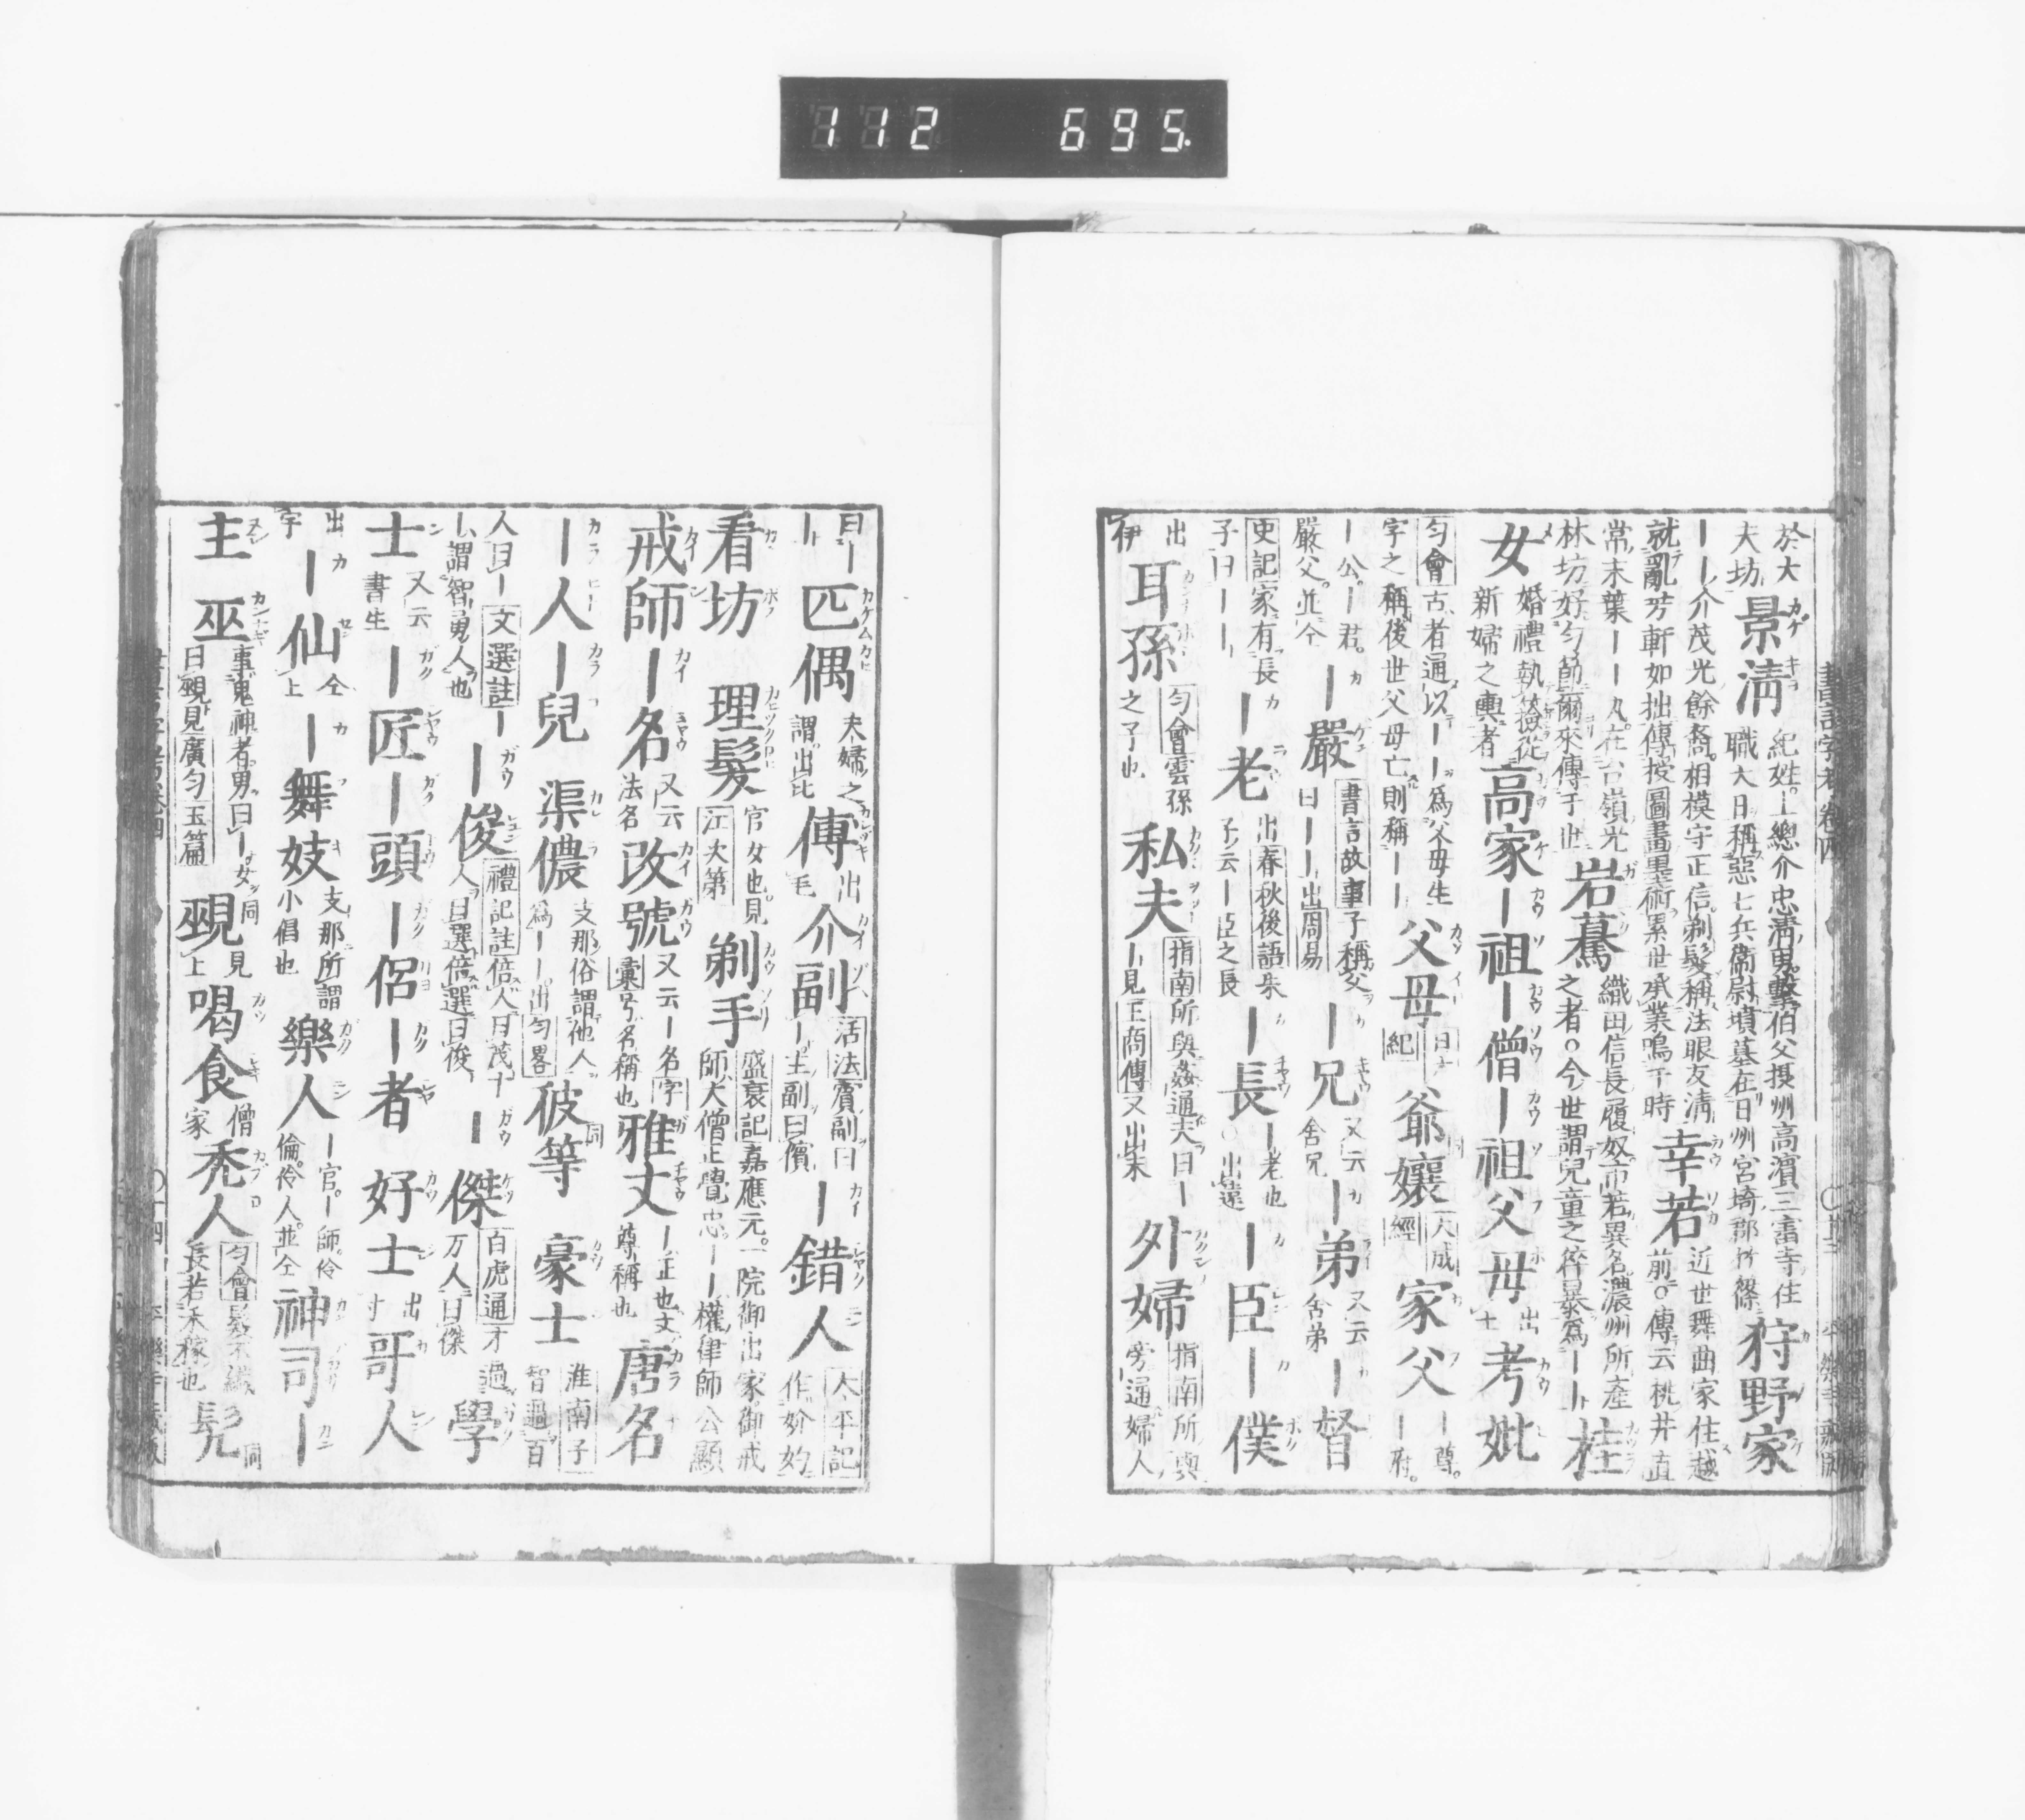 112 695.
於大
夫坊
景淸 紀姓。｜總介忠淸男。繫伯父摂州高濵三富寺住
職大日稱惡七兵衛尉墳墓在日州宮埼郡竹篠
狩野家
｜｜介茂光餘裔。相模守正信。剃髮稱法眼友淸
就亂芳軒如拙傳授圖畫墨術累世承業鳴于時
幸若 近世舞曲家住越
前。○傳云桃井直
常末葉｜｜丸。在台嶺光
林坊好匀節爾來傳于世
岩驀 織田信長履奴市若異名濃州所產
之者○今世謂兒童之倅暴爲｜｜
桂
女 婚禮執儉從
新婦之輿者
高家 ｜祖 ｜僧 ｜祖父母 出
士
考妣
匀會古者通以｜｜爲父母生
字之稱後世父母亡則稱｜｜
父母 日本
紀
爺孃 大成
經
家父 ｜尊。
｜府。
｜公。｜君。
嚴父。並仝
｜嚴 書言故事子稱父
曰｜｜出周易
｜兄 又云
舍兄
｜弟 又云
舍弟
｜督
史記家有長
子曰｜｜
｜老 出春秋後語朱
子云｜臣之長
｜長 ｜老也
○出遠
｜臣 ｜僕
出
伊
耳孫 匀會雲孫
之子也
私夫 指南所與姦通夫曰｜
｜見王商傳又出末
外婦 指南所與
旁通婦人
曰｜
｜
匹偶 夫婦之
謂出比
傳 出
毛
介副 活法賓副曰
｜主副曰儐
｜錯人 太平記
作妎妁
看坊 理髮 官女也。見
江次第
剃手 盛衰記嘉應元。一院御出家。御戒
師大僧正覺忠。｜｜權律師公顯
戒師 ｜名 又云
法名
改號 又云｜名字
彙号名稱也
雅丈 ｜正也丈
尊稱也
唐名
｜人 ｜兒 渠儂 支那俗謂他人
爲｜｜。出匀畧
彼等 豪士 淮南子
智過百
人曰｜文選註｜
｜謂智勇人也
｜俊 禮記註倍人曰茂十
人曰選倍選曰俊
｜傑 白虎通才過
万人曰傑
學
士 又云
書生
｜匠 ｜頭 ｜侶 ｜者 好士 出
寸
哥人
出
字
｜仙 仝
上
｜舞妓 支那所謂
小倡也
樂人 ｜官。｜師。伶
倫。伶人。並仝
神司 ｜
主 巫 事鬼神者。男曰｜女
曰覡見廣匀玉篇
覡 同見
上
喝食 僧
家
禿人 匀會髮不纖
長若禾稼也
髡 同